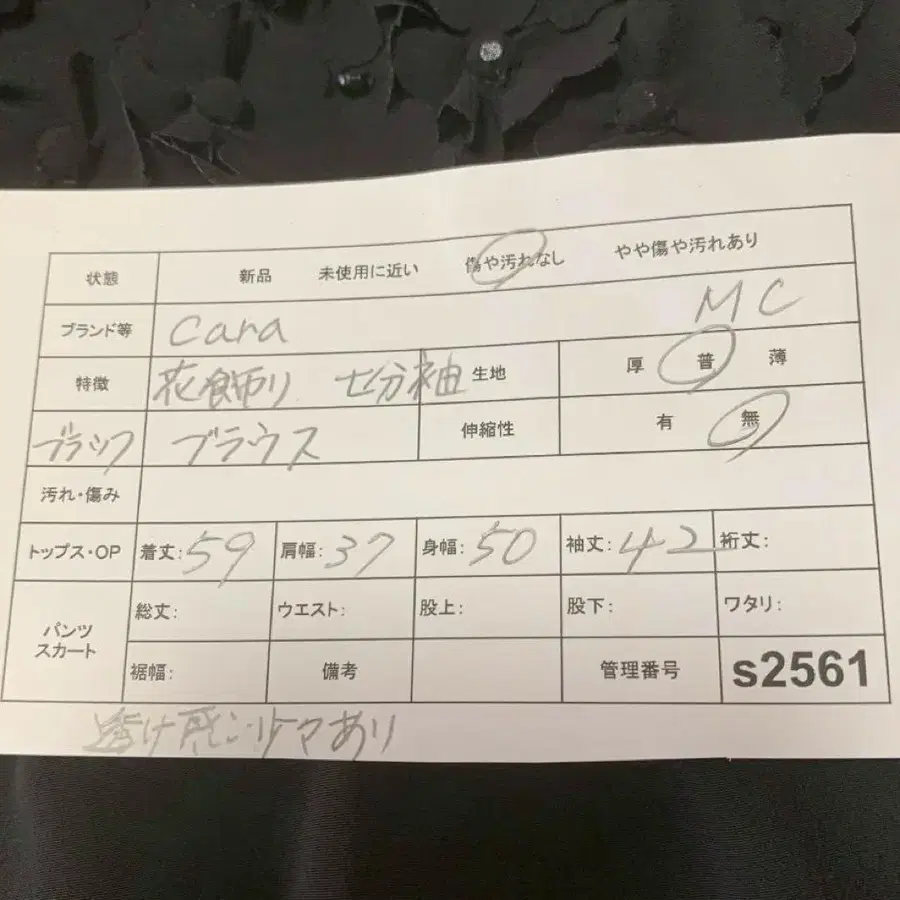 状態 新品 未使用に近い 傷や汚れなし やや傷や汚れあり
ブランド等 cara MC
特徴 花飾り 七分袖 生地 厚 普 薄
ブラック ブラウス 伸縮性 有 無
汚れ・傷み
トップス・OP 着丈:59 肩幅:37 身幅:50 袖丈:42 裄丈:
パンツ スカート 総丈: ウエスト: 股上: 股下: ワタリ:
裾幅: 備考 管理番号 s2561
透け感 あり